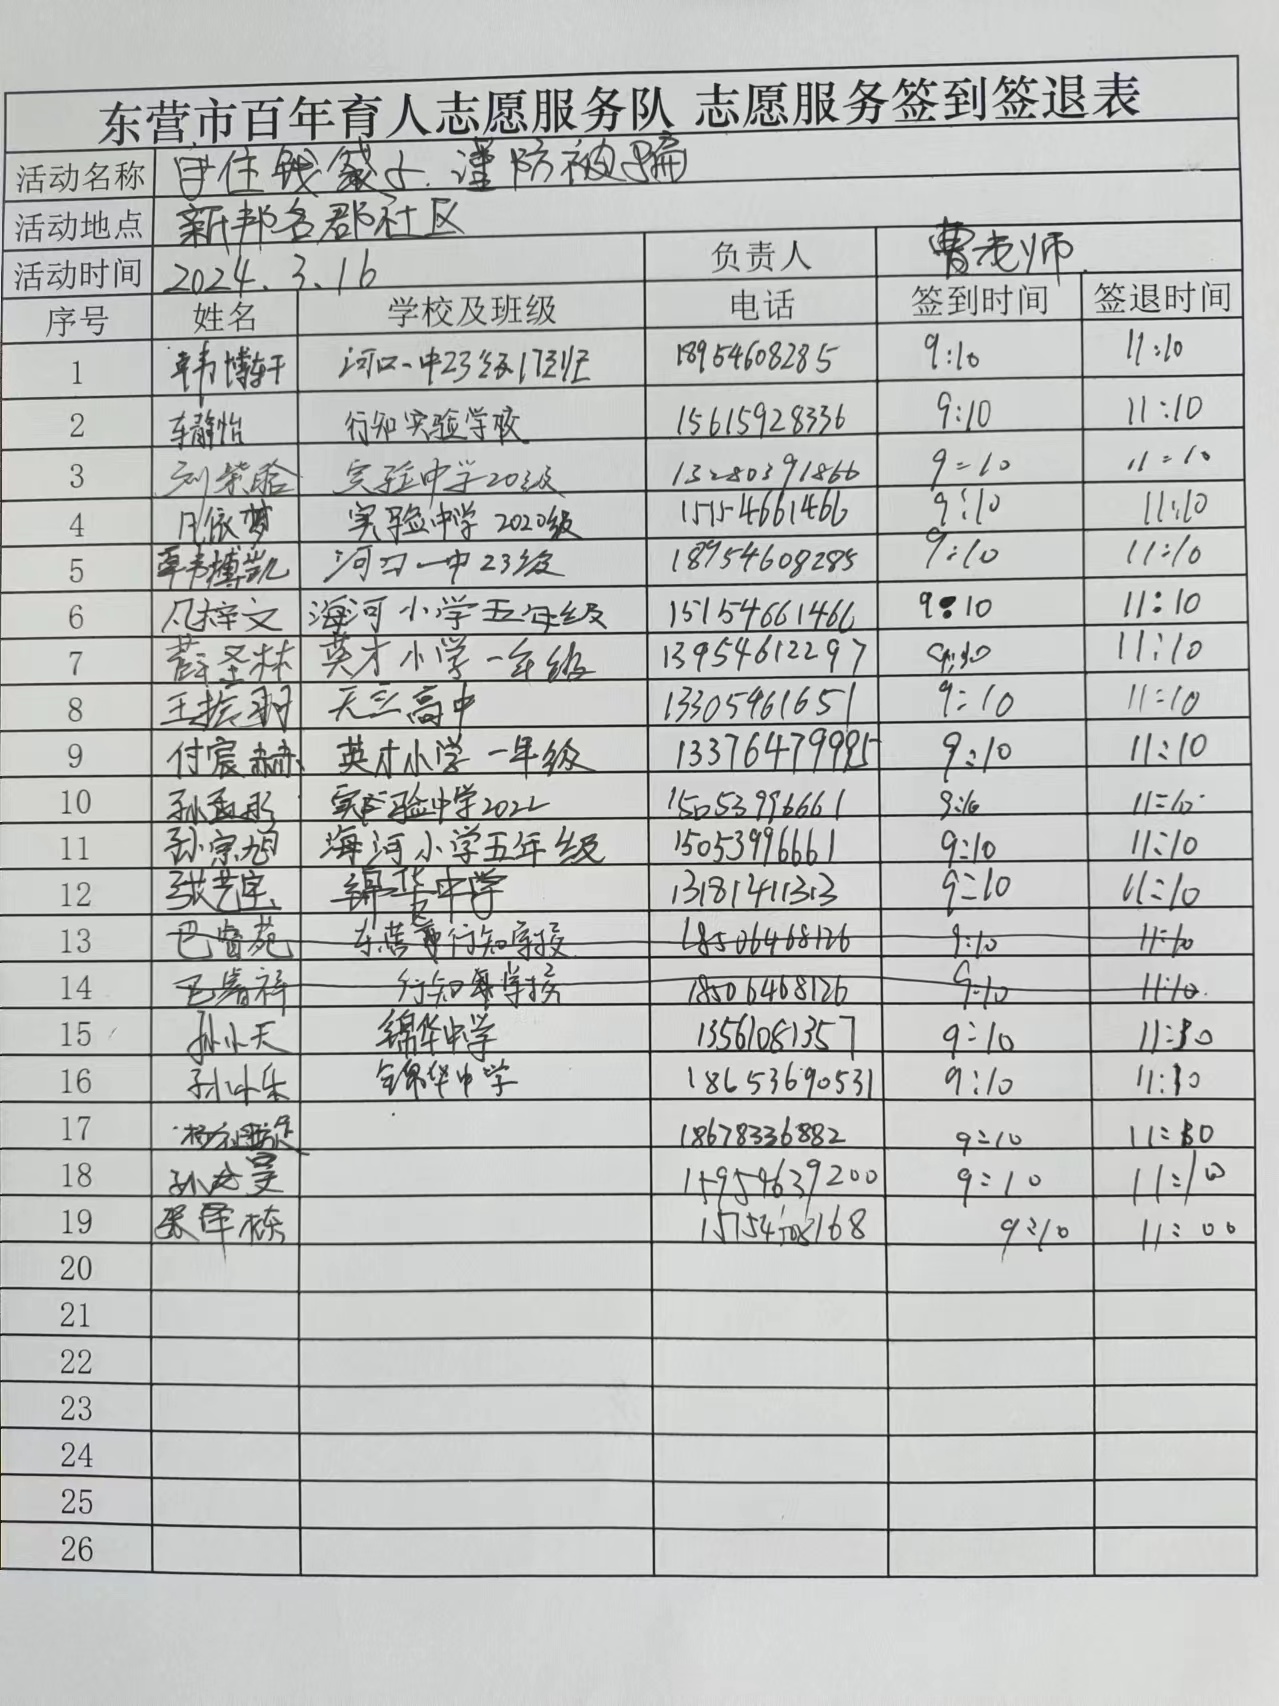 东营市百年育人志愿服务队 志愿服务签到签退表
活动名称 住钱袋子.谨防被骗
活动地点 新邦名郡社区
活动时间 2024.3.16 负责人 曹老师
序号 姓名 学校及班级 电话 签到时间 签退时间
1 韩博轩 河口一中23级17班 18954608285 9:10 11:10
2 车静怡 行知实验学校 15615928336 9:10 11:10
3 刘紫晗 实验中学20级 13280391866 9:10 11:10
4 凡依梦 实验中学 2020级 15154661466 9:10 11:10
5 韩博凯 河口一中23级 18954608285 9:10 11:10
6 凡梓文 海河小学五年级 15154661466 9:10 11:10
7 薛圣林 英才小学一年级 13954612297 9:10 11:10
8 王振羽 天立高中 13305461651 9:10 11:10
9 付宸赫 英才小学一年级 13376479995 9:10 11:10
10 孙 实验中学2022 15053996661 9:10 11:10
11 孙宗旭 海河小学五年级 15053996661 9:10 11:10
12 张艺宝 锦华中学 13181411313 9:10 11:10
13 巴睿苑 东营市行知学校 18506468126 9:10 11:10
14 巴睿祥 行知学校 18506468126 9:10 11:10
15 孙小天 锦华中学 13561081357 9:10 11:30
16 孙小乐 锦华中学 18653690531 9:10 11:30
17 杨 18678336882 9:10 11:30
18 孙文昊 15954639200 9:10 11:10
19 泽栋 9:10 11:00
20
21
22
23
24
25
26